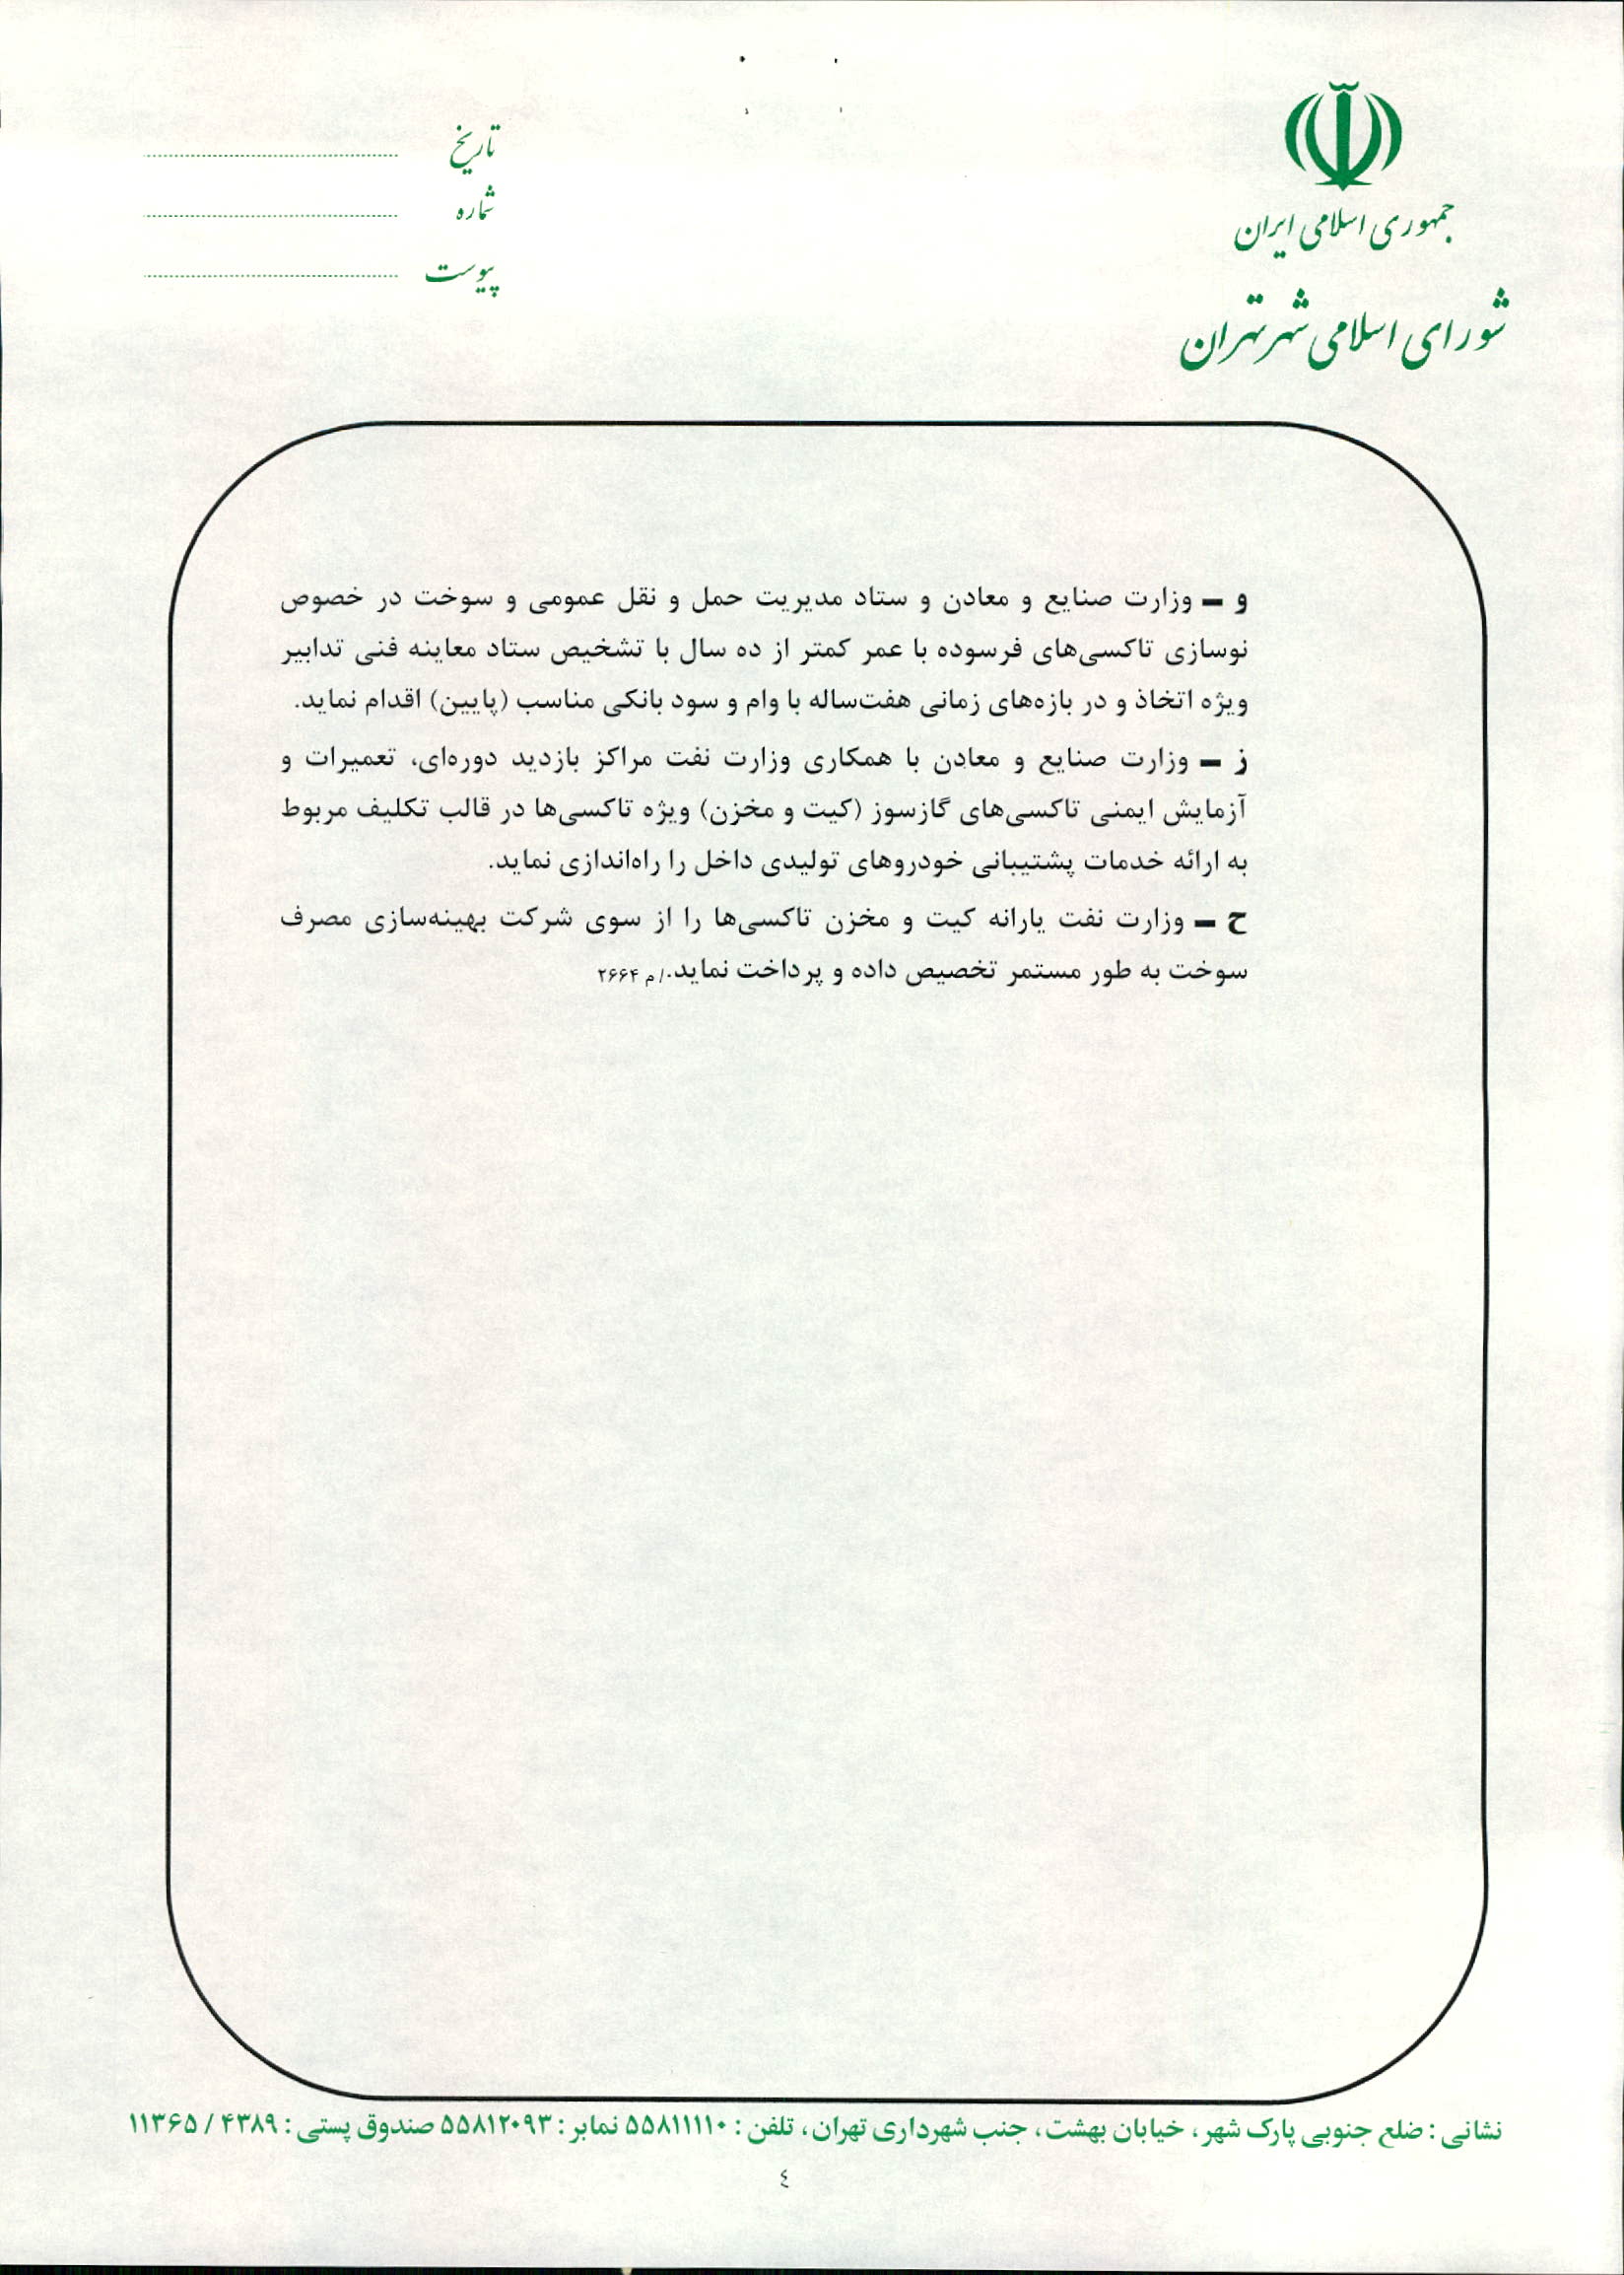 جمهوری اسلامی ایران
شورای اسلامی شهر تهران
تاریخ
شماره
پیوست
و – وزارت صنایع و معادن و ستاد مدیریت حمل و نقل عمومی و سوخت در خصوص
نوسازی تاکسی‌های فرسوده با عمر کمتر از ده سال با تشخیص ستاد معاینه فنی تدابیر
ویژه اتخاذ و در بازه‌های زمانی هفت‌ساله با وام و سود بانکی مناسب (پایین) اقدام نماید.
ز – وزارت صنایع و معادن با همکاری وزارت نفت مراکز بازدید دوره‌ای، تعمیرات و
آزمایش ایمنی تاکسی‌های گازسوز (کیت و مخزن) ویژه تاکسی‌ها در قالب تکلیف مربوط
به ارائه خدمات پشتیبانی خودروهای تولیدی داخل را راه‌اندازی نماید.
ح – وزارت نفت یارانه کیت و مخزن تاکسی‌ها را از سوی شرکت بهینه‌سازی مصرف
سوخت به طور مستمر تخصیص داده و پرداخت نماید./ م ۲۶۶۴
نشانی : ضلع جنوبی پارک شهر، خیابان بهشت، جنب شهرداری تهران، تلفن : ۵۵۸۱۱۱۱۰ نمابر : ۵۵۸۱۲۰۹۳ صندوق پستی : ۴۳۸۹ / ۱۱۳۶۵
٤